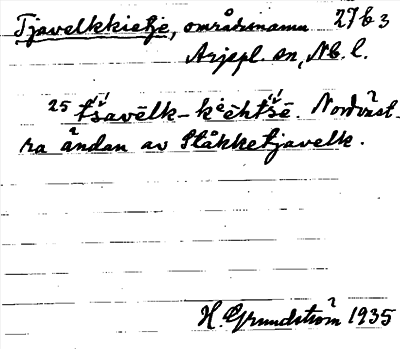 Tjavelkkietje, områdesnamn 27b3
Arjepl. sn, Nb. l.
25 tšavēlk-kėėhtšē. Nordväst-
ra ändan av Ståkketjavelk.
H. Grundström 1935